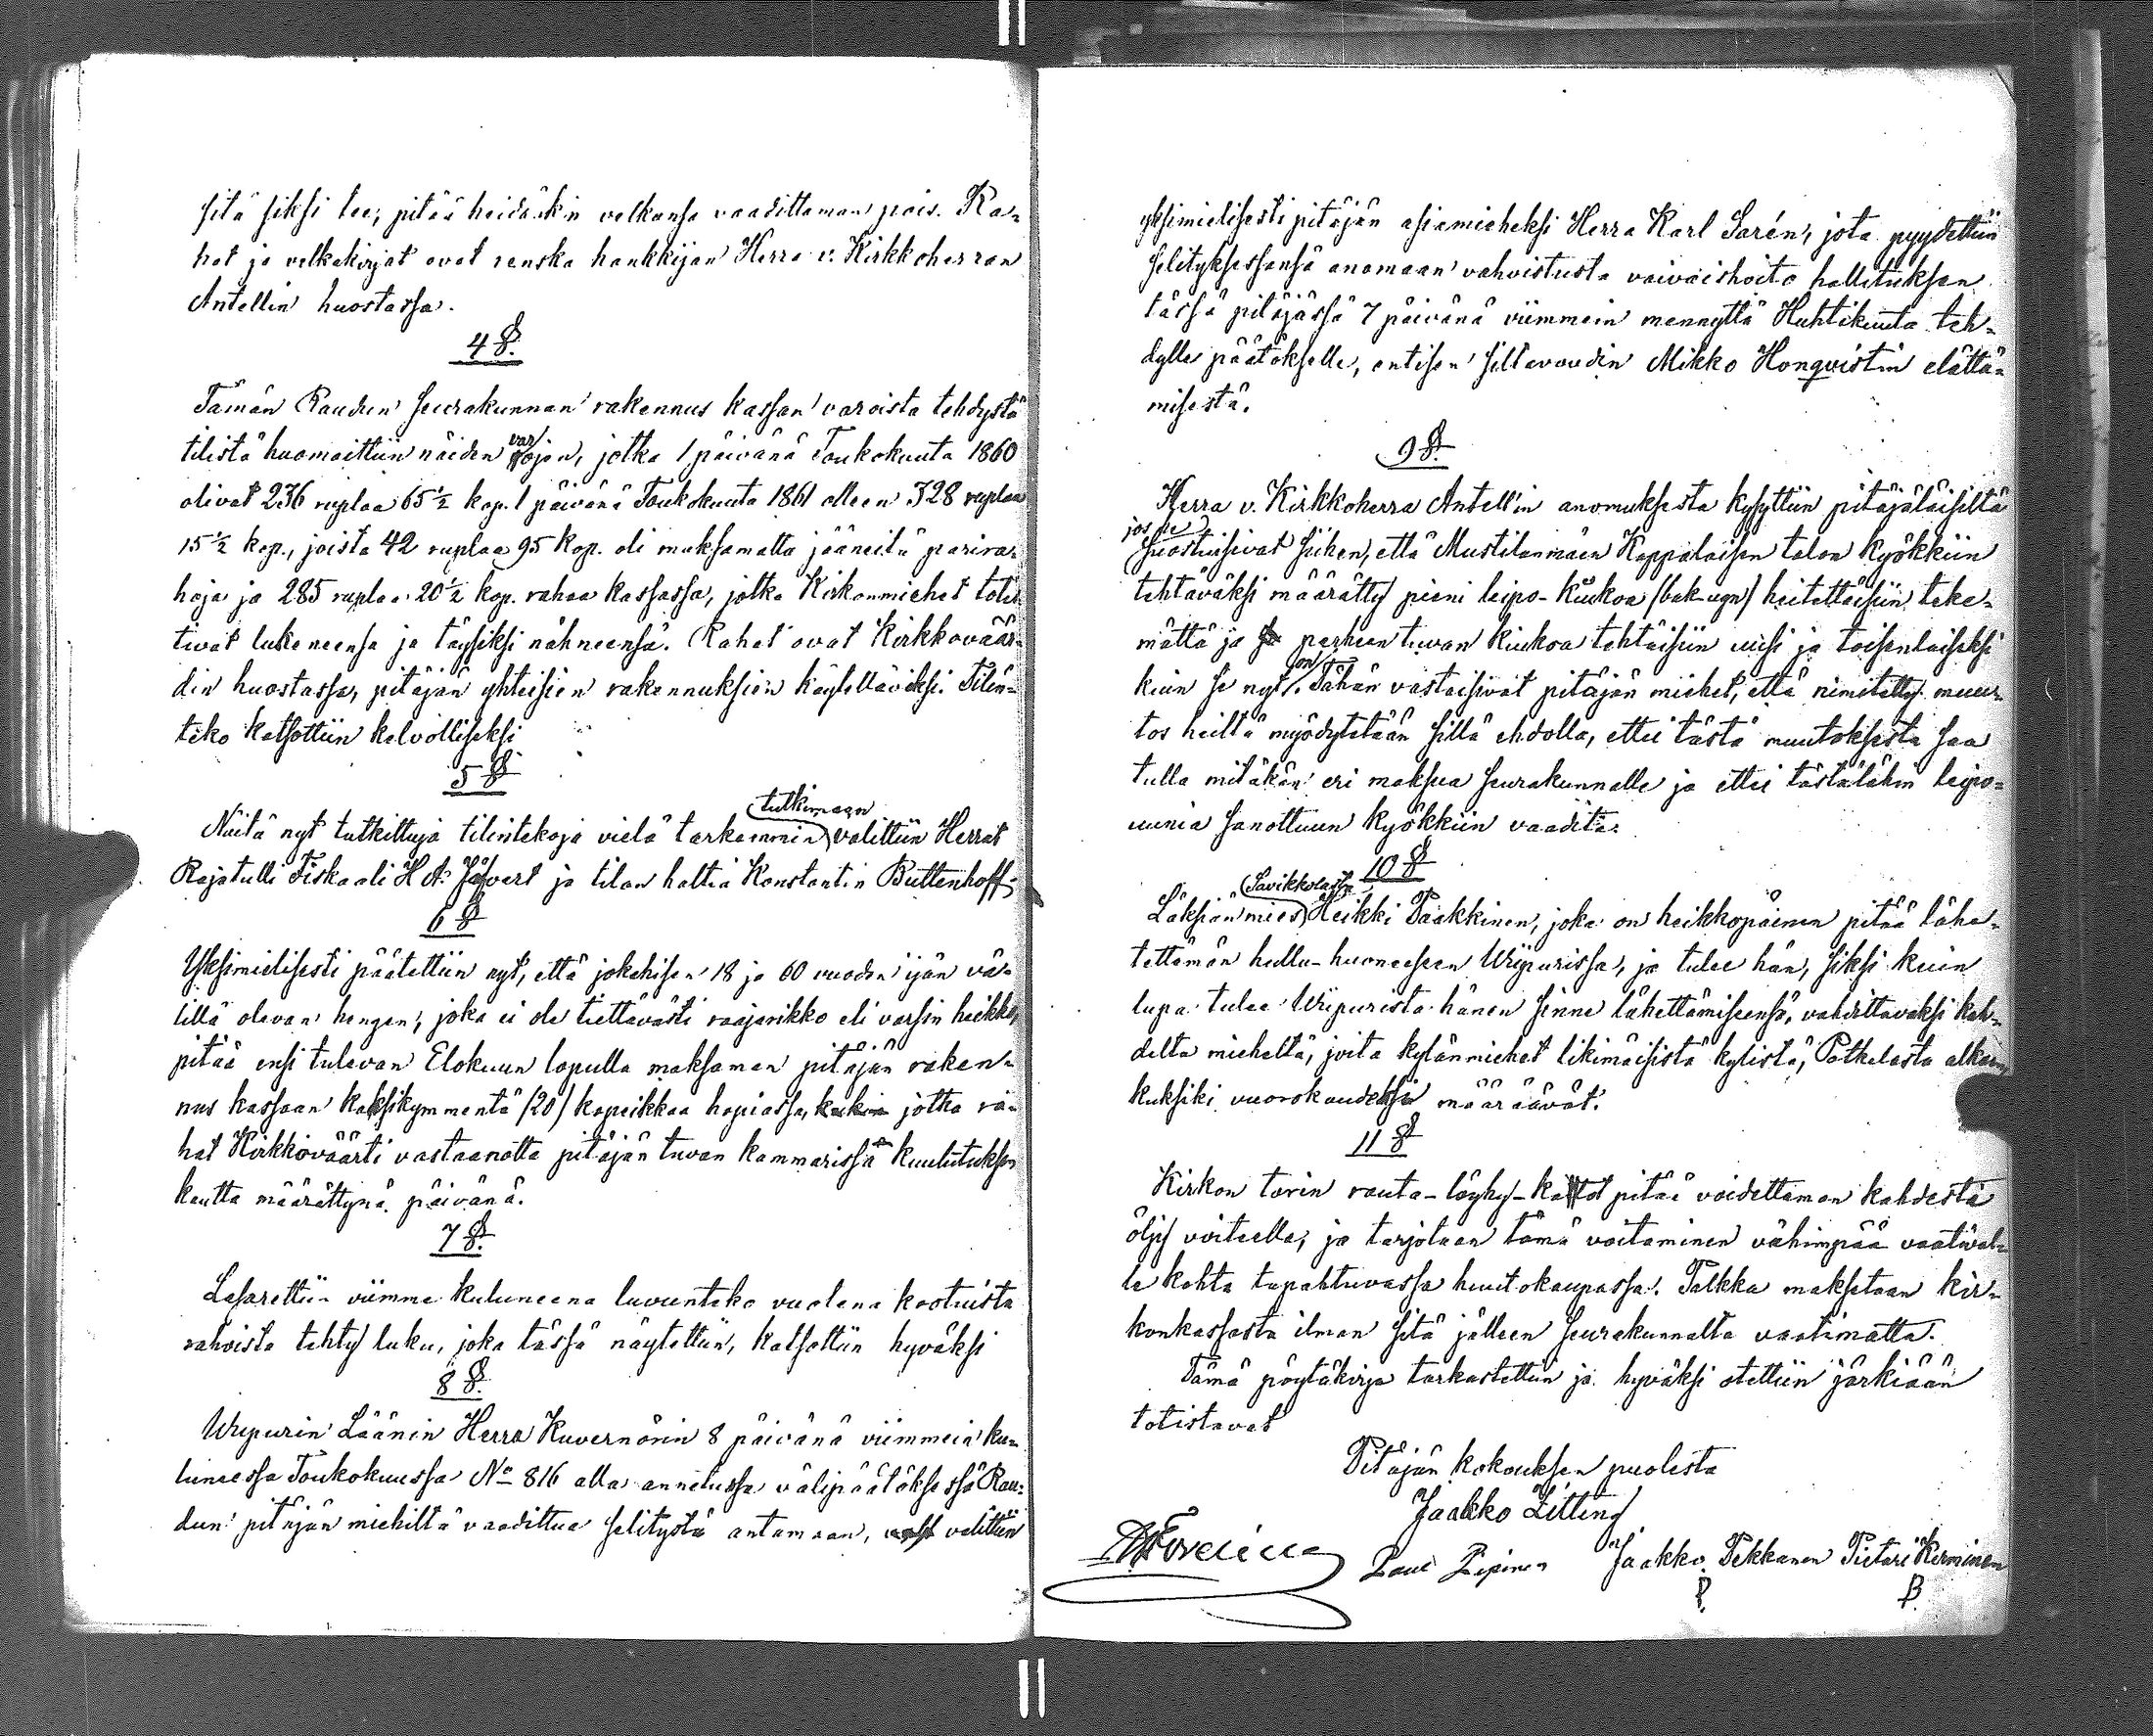 sitä siksi tee, pitää heidänkin velkansa vaadittaman pois. Ra-
hat ja velkakirjat ovat ranska hankkijan Herra v. Kirkkoherran
Antellin huostassa.
4 §.
Tämän Raudun seurakunnan rakennus kassan varoista tehdystä
tilistä huomaittiin näiden varojen, jotka 1 päivänä Toukokuuta 1860
olivat 236 ruplaa 65 ½ kop. 1 päivänä Toukokuuta 1861 olleen 328 ruplaa
15 ½ kop., joista 42 ruplaa 95 kop. oli maksamatta jääneitä parira-
hoja ja 285 ruplaa 20 ½ kop. rahaa kassassa, jotka Kirkonmiehet totis-
tivat lukeneensa ja täysiksi nähneensä. Rahat ovat Kirkkoväär-
din huostassa, pitäjän yhteisien rakennuksien käytettäviksi. Tilin-
teko katsottiin kelvolliseksi
5 §
tutkimaan
Näitä nyt tutkittuja tilintekoja vielä tarkemmin valittiin Herrat
Rajatulli Fiskaali H A. ja tilan haltia Konstantin Buttenhoff.
6 §
Yksimielisesti päätettiin nyt, että jokahisen 18 ja 60 vuoden ijän vä-
lillä olevan hengen, joka ei ole tiettävästi raajarikko eli varsin heikko,
pitää ensi tulevan Elokuun lopulla maksaman pitäjän raken-
nus kassaan kaksikymmentä /20/ kopeikkaa hopiassa, jotka ra-
hat Kirkkoväärti vastaanottaa pitäjän tuvan kammarissa kuulutuksen
kautta määrättynä päivänä.
7 §.
Lasarettiin viimme kuluneena luvunteko vuotena kootuista
rahoista tehty luku, joka tässä näytettiin, katsottiin hyväksi
8 §.
Wiipurin Läänin Herra Kuvernörin 8 päivänä viimmein ku-
luneessa Toukokuussa No 816 alla annetussa välipäätöksessä Rau-
dun pitäjän miehiltä vaadittua selitystä antamaan, valittiin
yksimielisesti pitäjän asiamieheksi Herra Karl Sarén, jota pyydettiin
selityksessänsä anomaan vahvistusta vaivaishoito hallituksen
tässä pitäjässä 7 päivänä viimmein mennyttä Huhtikuuta teh-
dylle päätökselle, entisen siltavoudin Mikko Honqvistin elättä-
misestä.
9 §.
Herra v. Kirkkoherra Antell'in anomuksesta kysyttiin pitäjäläisiltä
jos he
suostuisivat siihen, että Mustilanmäen Kappalaisen talon kyökkiin
tehtäväksi määrätty pieni leipo-kiukoa /bak-ugn/ heitettäisiin teke-
mättä ja perheen tuvan kiukoa tehtäisiin uusi ja toisenlaiseksi
kuin se nyt on. Tähän vastaisivat pitäjän miehet, että nimitetty muu-
tos heiltä myödytetään sillä ehdolla, ettei tästä muutoksesta saa
tulla mitäkän eri maksua seurakunnalle ja ettei tästälähin leipo-
uunia sanottuun kyökkiin vaadita.
10 §
Savikkolasta
Läksiänmies Heikki Paakkinen, joka on heikkopäinen pitää lähe-
tettämän hullu-huoneeseen Wiipurissa, ja tulee hän, siksi kuin
lupa tulee Wiipurista hänen sinne lähettämiseensä, vahdittavaksi kah-
delta mieheltä, joita kylänmiehet likimäisistä kylistä, Potkelasta alkaen,
kuksiki vuorokaudeksi määräävät.
11 §
Kirkon tornin rauta-löyhy-katot pitää voidettaman kahdesta
öljy voiteella, ja tarjotaan tämä voitaminen vähimpää vaatival-
le kohta tapahtuvassa huutokaupassa. Palkka maksetaan kir-
konkassasta ilman sitä jälleen seurakunnalta vaatimatta.
Tämä pöytäkirja tarkastettiin ja hyväksi otettiin järkiään
totistavat
Pitäjän kokouksen puolesta
Jaakko Litting
Paul Jaakko Pekkanen Pietari Kerminen